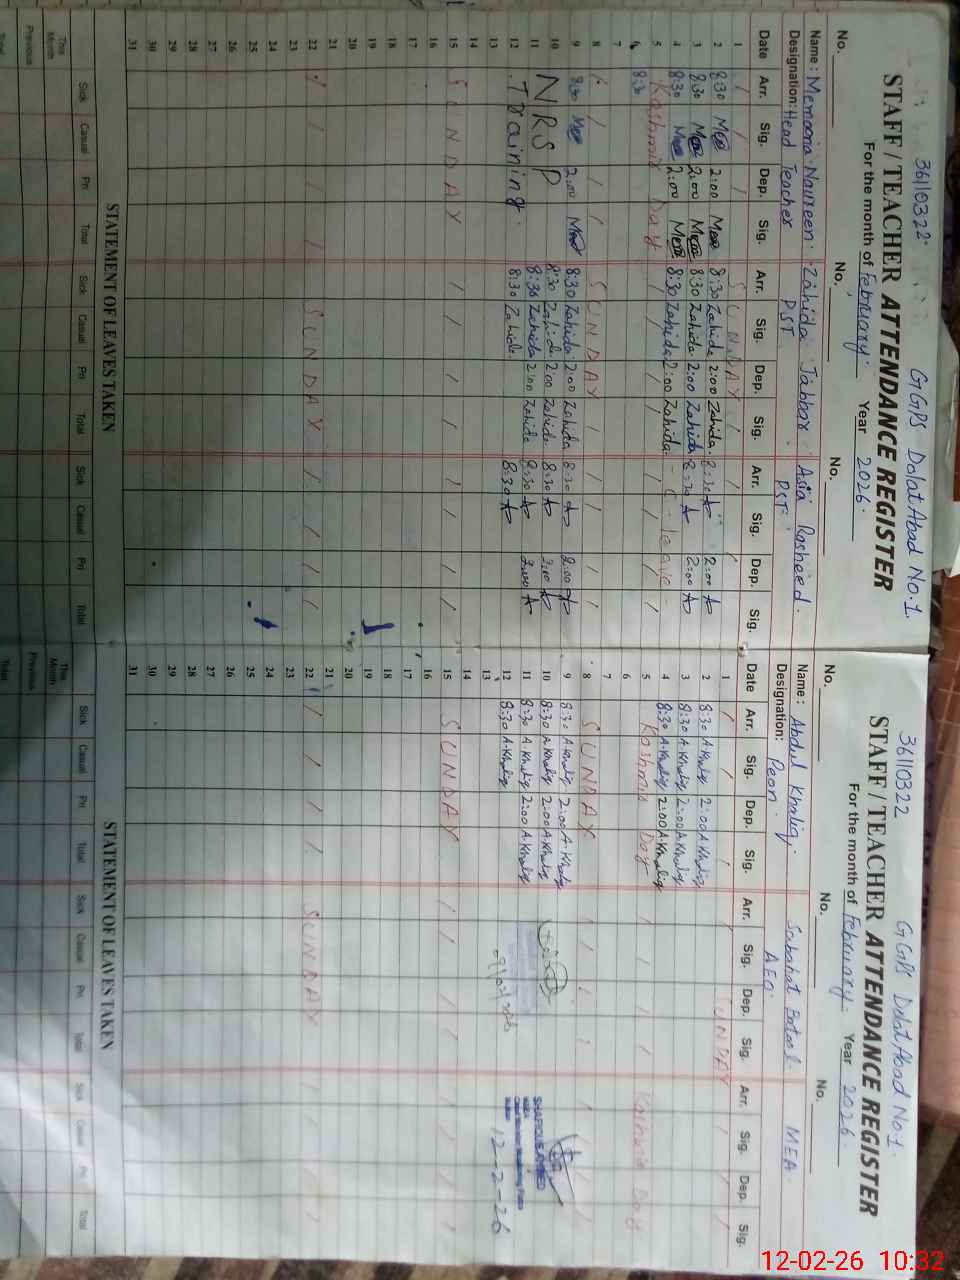 36110322
GGPS Dolat Abad No.1.
STAFF / TEACHER ATTENDANCE REGISTER
For the month of February. Year 2026.
No. No. No.
Name: Memoona Naureen. Zahida Jabbar. Asia Rasheed.
Designation: Head Teacher PST. PST.
Date Arr. Sig. Dep. Sig. Arr. Sig. Dep. Sig. Arr. Sig. Dep. Sig.
1 SUNDAY
2 8:30 2:00 8:30 Zahida 2:00 Zahida. 8:30 2:00
3 8:30 2:00 8:30 Zahida. 2:00 Zahida 8:30 2:00
4 8:30 2:00 8:30 Zahida 2:00 Zahida. - C - leave -
5 Kashmir Day
6 8:30
7
8 SUNDAY
9 8:30 2:00 8:30 Zahida 2:00 Zahida 8:30 2:00
10 NRSP 8:30 Zahida. 2:00 Zahida 8:30 2:00
11 8:30 Zahida 2:00 Zahida 8:30 2:00
12 Training. 8:30 Zahida. 8:30
13
14
15 SUNDAY
16
17
18
19
20
21
22 SUNDAY
23
24
25
26
27
28
29
30
31
STATEMENT OF LEAVES TAKEN
Sick Casual Pri Total Sick Casual Pri Total Sick Casual Pri Total
This Month
Previous
Total
36110322
GGPS Dolat Abad No.1.
STAFF / TEACHER ATTENDANCE REGISTER
For the month of February. Year 2026.
No. No. No.
Name: Abdul Khaliq. Sabahat Batool. MEA.
Designation: Peon. AEO.
Date Arr. Sig. Dep. Sig. Arr. Sig. Dep. Sig. Arr. Sig. Dep. Sig.
1 SUNDAY
2 8:30 A.Khaliq 2:00 A.Khaliq
3 8:30 A.Khaliq 2:00 A.Khaliq
4 8:30 A.Khaliq 2:00 A.Khaliq
5 Kashmir Day Kashmir Day
6
7
8 SUNDAY
9 8:30 A.Khaliq 2:00 A.Khaliq
10 8:30 A.Khaliq 2:00 A.Khaliq
11 8:30 A.Khaliq 2:00 A.Khaliq
12 8:30 A.Khaliq 12-2-26
13
14
15 SUNDAY
16
17
18
19
20
21
22 SUNDAY
23
24
25
26
27
28
29
30
31
STATEMENT OF LEAVES TAKEN
Sick Casual Pri Total Sick Casual Pri Total Sick Casual Pri Total
This Month
Previous
Total
12-02-26 10:32